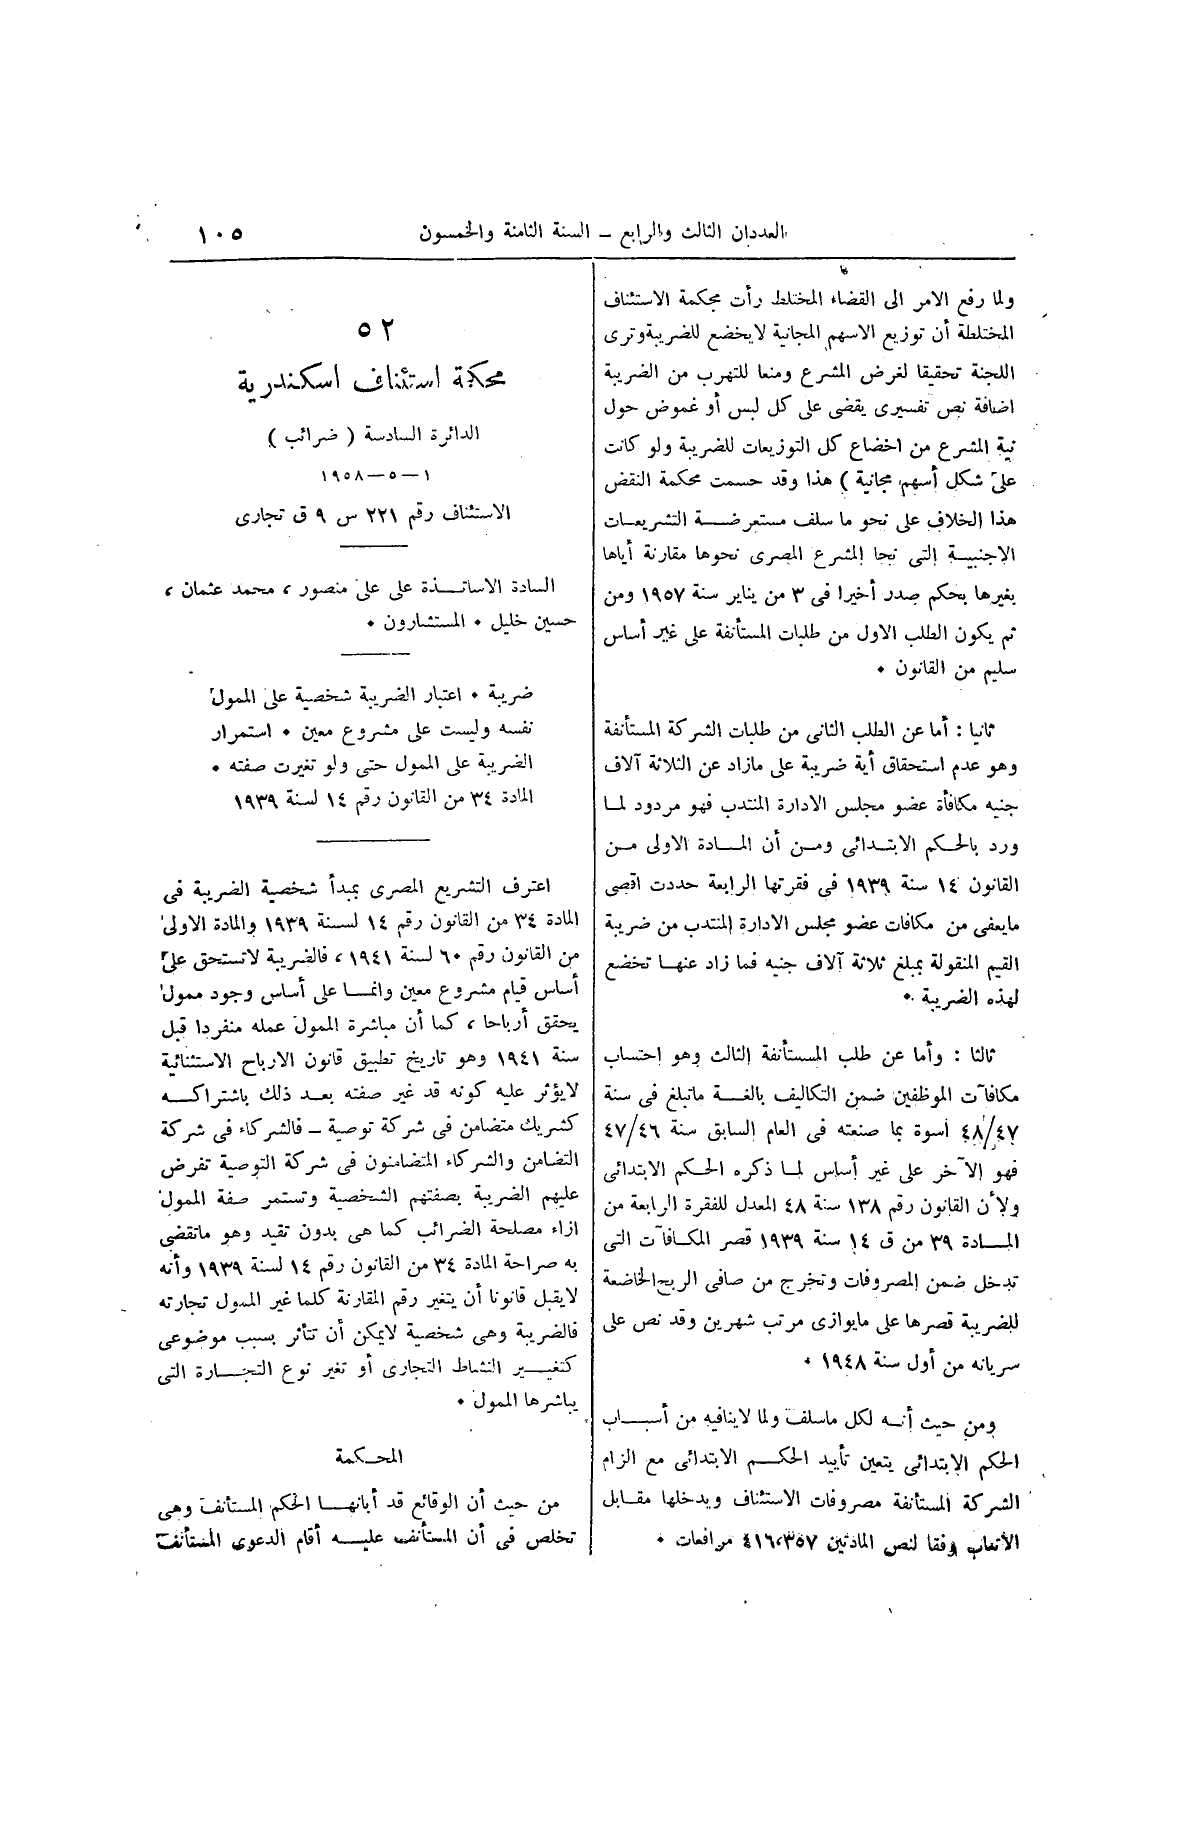 العددان الثالث والرابع – السنة الثامنة والخمسون
١٠٥
ولما رفع الامر الى القضاء المختلط رأت محكمة الاستئناف
المختلطة أن توزيع الاسهم المجانية لايخضع للضريبة وترى
اللجنة تحقيقا لغرض المشرع ومنعا للتهرب من الضريبة
اضافة نص تفسيرى يقضى على كل لبس أو غموض حول
نية المشرع من اخضاع كل التوزيعات للضريبة ولو كانت
على شكل أسهم مجانية ) هذا وقد حسمت محكمة النقض
هذا الخلاف على نحو ما سلف مستعرضة التشريعات
الاجنبية التى نحا المشرع المصرى نحوها مقارنة أياها
بغيرها بحكم صدر أخيرا فى ٣ من يناير سنة ١٩٥٧ ومن
ثم يكون الطلب الاول من طلبات المستأنفة على غير أساس
سليم من القانون •
ثانيا : أما عن الطلب الثانى من طلبات الشركة المستأنفة
وهو عدم استحقاق أية ضريبة على مازاد عن الثلاثة آلاف
جنيه مكافأة عضو مجلس الادارة المنتدب فهو مردود لما
ورد بالحكم الابتدائى ومن أن المادة الاولى من
القانون ١٤ سنة ١٩٣٩ فى فقرتها الرابعة حددت اقصى
مايعفى من مكافات عضو مجلس الادارة المنتدب من ضريبة
القيم المنقولة بمبلغ ثلاثة آلاف جنيه فما زاد عنها تخضع
لهذه الضريبة •
ثالثا : وأما عن طلب المستأنفة الثالث وهو احتساب
مكافآت الموظفين ضمن التكاليف بالغة ماتبلغ فى سنة
٤٨/٤٧ اسوة بما صنعته فى العام السابق سنة ٤٧/٤٦
فهو الآخر على غير أساس لما ذكره الحكم الابتدائى
ولأن القانون رقم ١٣٨ سنة ٤٨ المعدل للفقرة الرابعة من
المادة ٣٩ من ق ١٤ سنة ١٩٣٩ قصر المكافآت التى
تدخل ضمن المصروفات وتخرج من صافى الربح الخاضعة
للضريبة قصرها على مايوازى مرتب شهرين وقد نص على
سريانه من أول سنة ١٩٤٨ •
ومن حيث أنه لكل ماسلف ولما لاينافيه من أسباب
الحكم الابتدائى يتعين تأييد الحكم الابتدائى مع الزام
الشركة المستأنفة مصروفات الاستئناف ويدخلها مقابل
الأتعاب وفقا لنص المادتين ٤١٦،٣٥٧ مرافعات •
٥٢
محكمة استئناف اسكندرية
الدائرة السادسة ( ضرائب )
١–٥–١٩٥٨
الاستئناف رقم ٢٢١ س ٩ ق تجارى
السادة الاساتذة على على منصور ، محمد عثمان ،
حسين خليل • المستشارون •
ضريبة • اعتبار الضريبة شخصية على الممول
نفسه وليست على مشروع معين • استمرار
الضريبة على الممول حتى ولو تغيرت صفته •
المادة ٣٤ من القانون رقم ١٤ لسنة ١٩٣٩
اعترف التشريع المصرى بمبدأ شخصية الضريبة فى
المادة ٣٤ من القانون رقم ١٤ لسنة ١٩٣٩ والمادة الاولى
من القانون رقم ٦٠ لسنة ١٩٤١ ، فالضريبة لاتستحق على
أساس قيام مشروع معين وانما على أساس وجود ممول
يحقق أرباحا ، كما أن مباشرة الممول عمله منفردا قبل
سنة ١٩٤١ وهو تاريخ تطبيق قانون الارباح الاستثنائية
لايؤثر عليه كونه قد غير صفته بعد ذلك باشتراكه
كشريك متضامن فى شركة توصية – فالشركاء فى شركة
التضامن والشركاء المتضامنون فى شركة التوصية تفرض
عليهم الضريبة بصفتهم الشخصية وتستمر صفة الممول
ازاء مصلحة الضرائب كما هى بدون تقيد وهو ماتقضى
به صراحة المادة ٣٤ من القانون رقم ١٤ لسنة ١٩٣٩ وأنه
لايقبل قانونا أن يتغير رقم المقارنة كلما غير الممول تجارته
فالضريبة وهى شخصية لايمكن أن تتأثر بسبب موضوعى
كتغيير النشاط التجارى أو تغير نوع التجارة التى
يباشرها الممول •
المحكمة
من حيث أن الوقائع قد أبانها الحكم المستأنف وهى
تخلص فى أن المستأنف عليه أقام الدعوى المستأنف